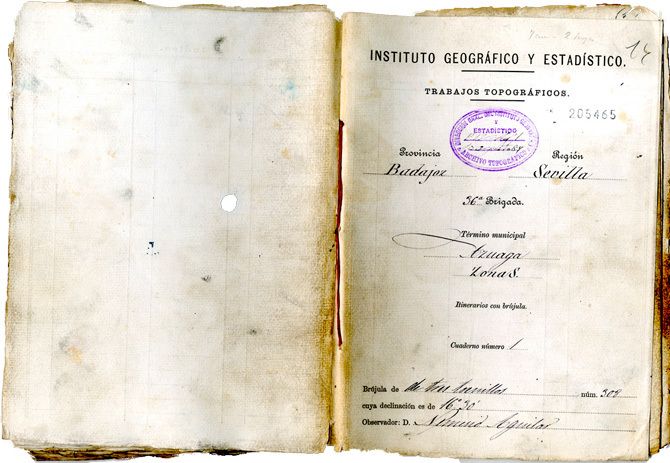 14
INSTITUTO GEOGRÁFICO Y ESTADÍSTICO.
TRABAJOS TOPOGRÁFICOS.
205465
Y
ESTADÍSTICO
ARCHIVO TOPOGRÁFICO
Provincia Región
Badajoz Sevilla
36ª Brigada.
Término municipal
Azuaga
Zona S.
Itinerarios con brújula.
Cuaderno número 1
Brújula de tres tornillos núm. 308
cuya declinación es de 16°30'
Observador: D. Aguilar